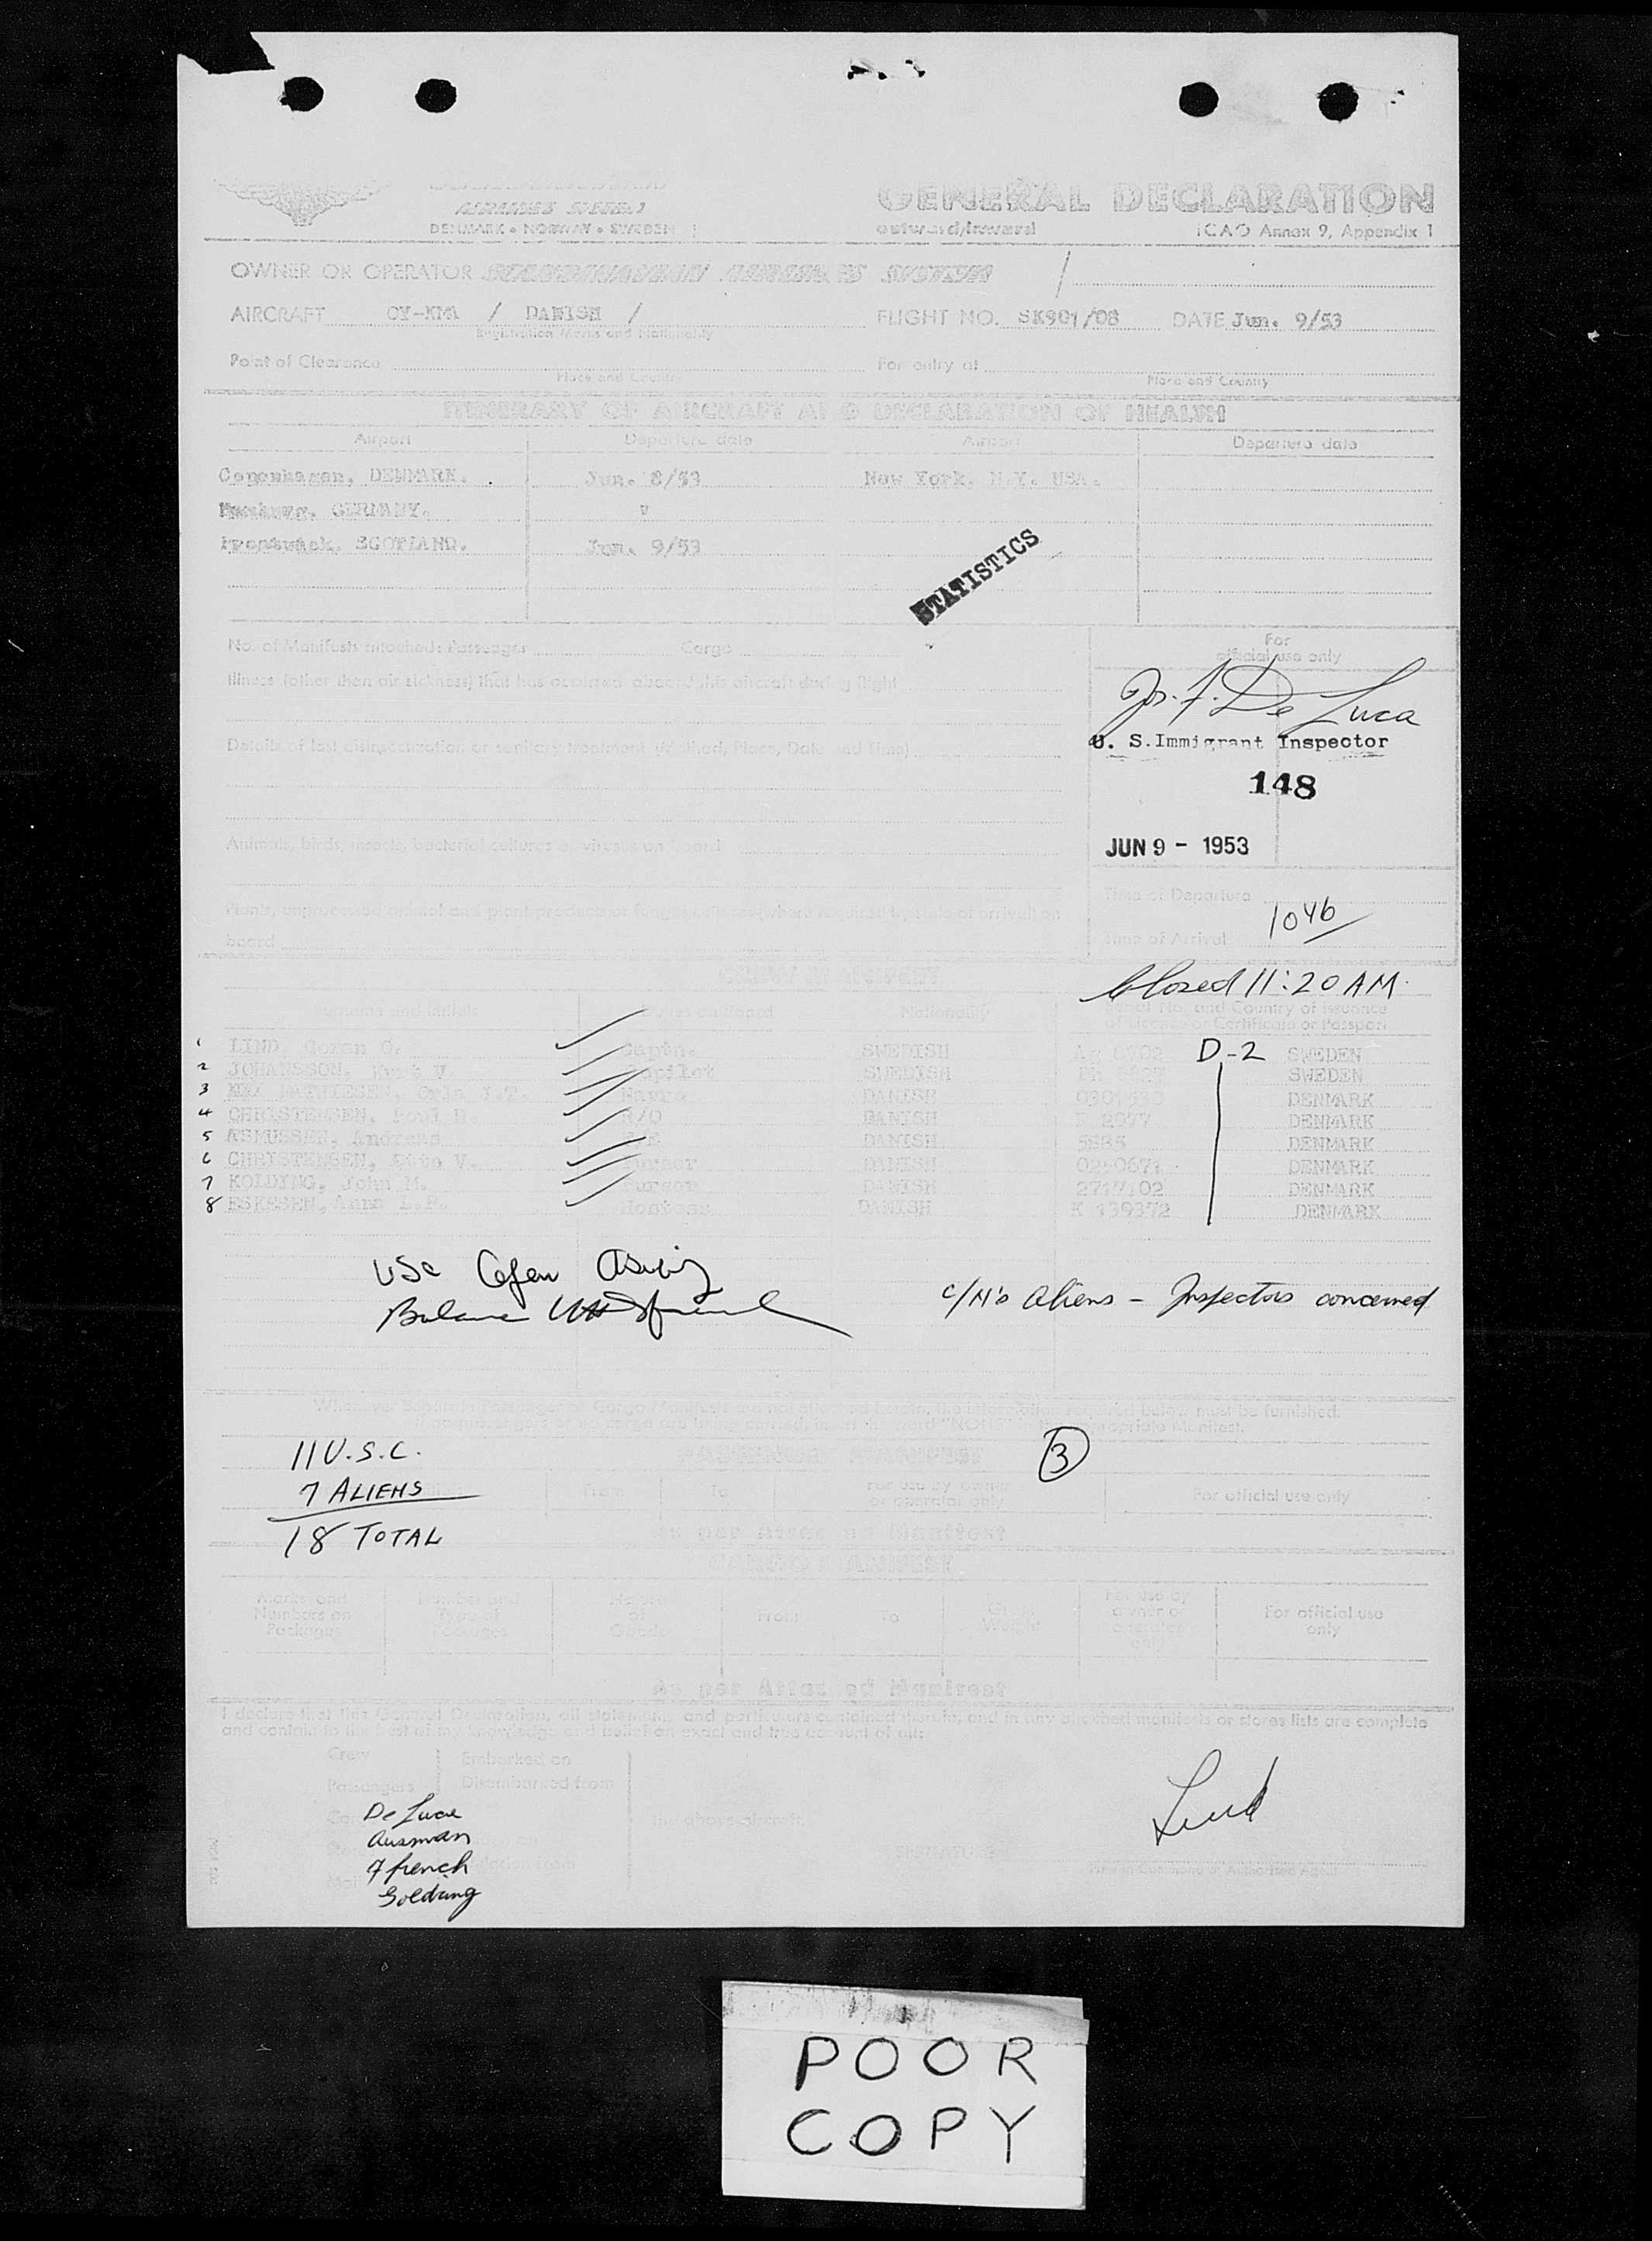 GENERAL DECLARATION
AIRLINES SYSTEM
DENMARK • NORWAY • SWEDEN
outward/inward
ICAO Annex 9, Appendix 1
OWNER OR OPERATOR SCANDINAVIAN AIRLINES SYSTEM /
AIRCRAFT OY-KMA / DANISH / FLIGHT NO. SK901/08 DATE Jun. 9/53
Registration Marks and Nationality
Point of Clearance For entry at
Place and Country Place and Country
ITINERARY OF AIRCRAFT AND DECLARATION OF HEALTH
Airport Departure date Airport Departure date
Copenhagen, DENMARK. Jun. 8/53 New York. N.Y. USA.
GERMANY. "
Prestwick, SCOTLAND. Jun. 9/53
STATISTICS
No. of Manifests attached: Passenger Cargo
For
official use only
Illness (other than air sickness) that has occurred aboard this aircraft during flight
Jos. F. De Luca
Details of last disinsectization or sanitary treatment (Method, Place, Date and Time)
U. S. Immigrant Inspector
148
JUN 9 - 1953
Animals, birds, insects, bacterial cultures or viruses on board
Time of Departure
Plants, unprocessed animal and plant products or fungus cultures (where required by state of arrival) on
board
1046
Time of Arrival
CREW MANIFEST
Closed 11:20 AM.
Surname and Initials Duties on Board Nationality Serial No. and Country of Issuance
of License or Certificate or Passport
1 LIND, Goran O. Captn. SWEDISH D-2 SWEDEN
2 JOHANSSON, Kurt V. Copilot SWEDISH SWEDEN
3 MATHIESEN, Orla J.T. DANISH DENMARK
4 CHRISTENSEN, Poul H. R/O DANISH 2977 DENMARK
5 ASMUSSEN, Andreas DANISH 5885 DENMARK
6 CHRISTENSEN, V. Purser DANISH DENMARK
7 KOLDING, John M. Purser DANISH 2717102 DENMARK
8 ESKESEN, Anna L.P. Hostess DANISH K 139372 DENMARK
USC
Balance
c/M's Aliens - Inspectors concerned
Whenever Separate Passenger or Cargo Manifests are not attached hereto, the information required below must be furnished.
If no passengers or no cargo are being carried, insert the word "NONE" in the appropriate Manifest.
11 U.S.C.
PASSENGER MANIFEST
3
7 ALIENS
From To For use by owner
or operator only For official use only
18 TOTAL
As per Attached Manifest
CARGO MANIFEST
Marks and
Numbers on
Packages
Number and
Type of
Packages
Nature
of
Goods
From To Gross
Weight
For use by
owner or
operator
only
For official use
only
As per Attached Manifest
I declare that this General Declaration, all statements and particulars contained therein, and in any attached manifests or stores lists are complete
and contain to the best of my knowledge and belief an exact and true account of all:
Crew Embarked on
Passengers Disembarked from
the above aircraft.
De Luca
Ausman
French
Goldring
Lind
SIGNATURE
POOR
COPY